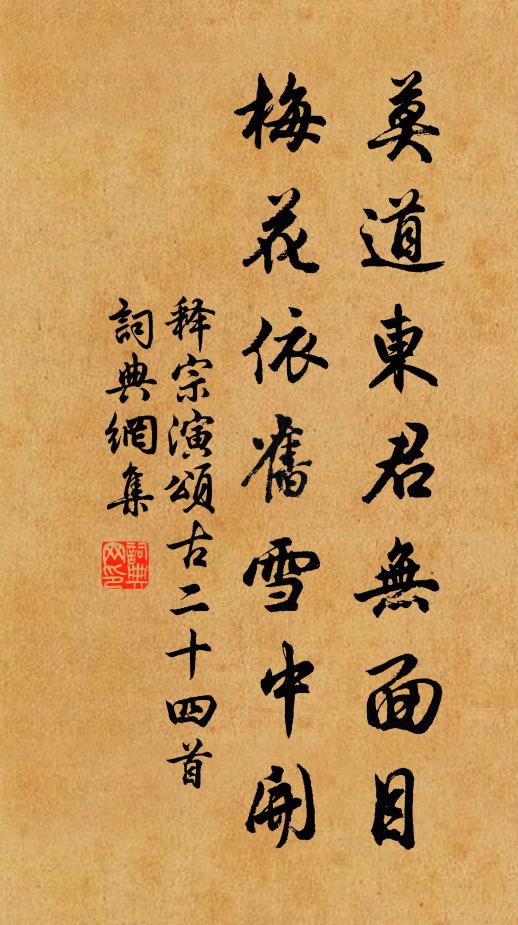 莫道東君無面目
梅花依舊雪中開
释宗演頌古二十四首
詞典網集
詞典网印